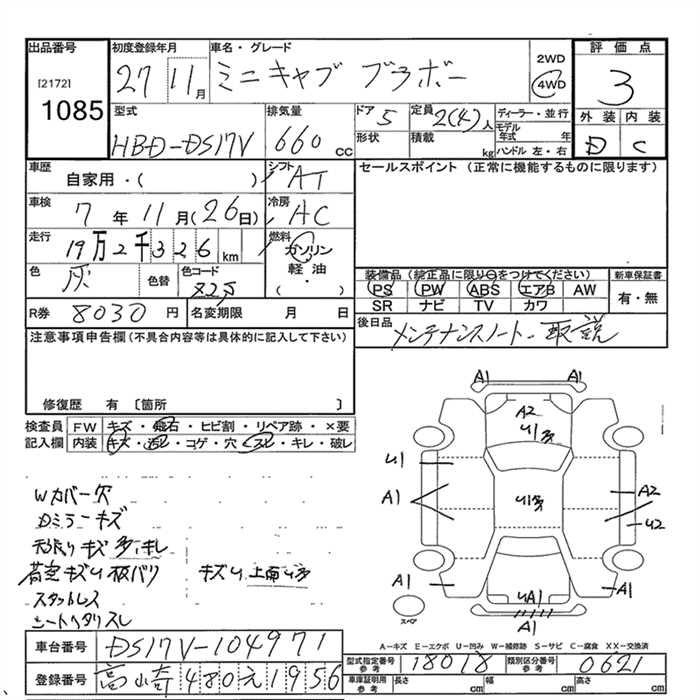 出品番号
[2172]
1085
初度登録年月
27 11月
車名・グレード
ミニキャブ ブラボー
2WD
4WD
評価点
3
外装 内装
D C
型式
HBD-DS17V
排気量
660 cc
ドア 5
定員 2(4)人
形状
積載 kg
ディーラー・並行
モデル年式 年
ハンドル 左・右
車歴
自家用・( )
シフト AT
車検
7年11月(26日)
冷房 AC
走行
19万2千326km
燃料
ガソリン
軽油
・( )
色 灰
色替
色コード
R券 8030円
名変期限 月 日
セールスポイント (正常に機能するものに限ります)
装備品 (純正品に限り○をつけてください)
PS PW ABS エアB AW
SR ナビ TV カワ
新車保証書
有・無
後日品
メンテナンスノート・取説
注意事項申告欄(不具合内容等は具体的に記入して下さい)
修復歴 有 〔箇所 〕
検査員記入欄
FW キズ・飛石・ヒビ割・リペア跡・×要
内装 キズ・汚レ・コゲ・穴・スレ・キレ・破レ
Wカバー欠
Dミラーキズ
天張りキズ多キレ
荷室キズU板バリ キズU上面U多
スタットレス
シートヘタリスレ
A1 A1
A2
U1多
U1
A1
U1多
A2
U2
A1 A1
UA1
A1
スペア
A-キズ E-エクボ U-凹み W-補修跡 S-サビ C-腐食 XX-交換済
車台番号 DS17V-104971
登録番号 高崎480え1956
型式指定番号 参考 18018
類別区分番号 参考 0621
車庫証明用 参考
長さ cm
幅 cm
高さ cm